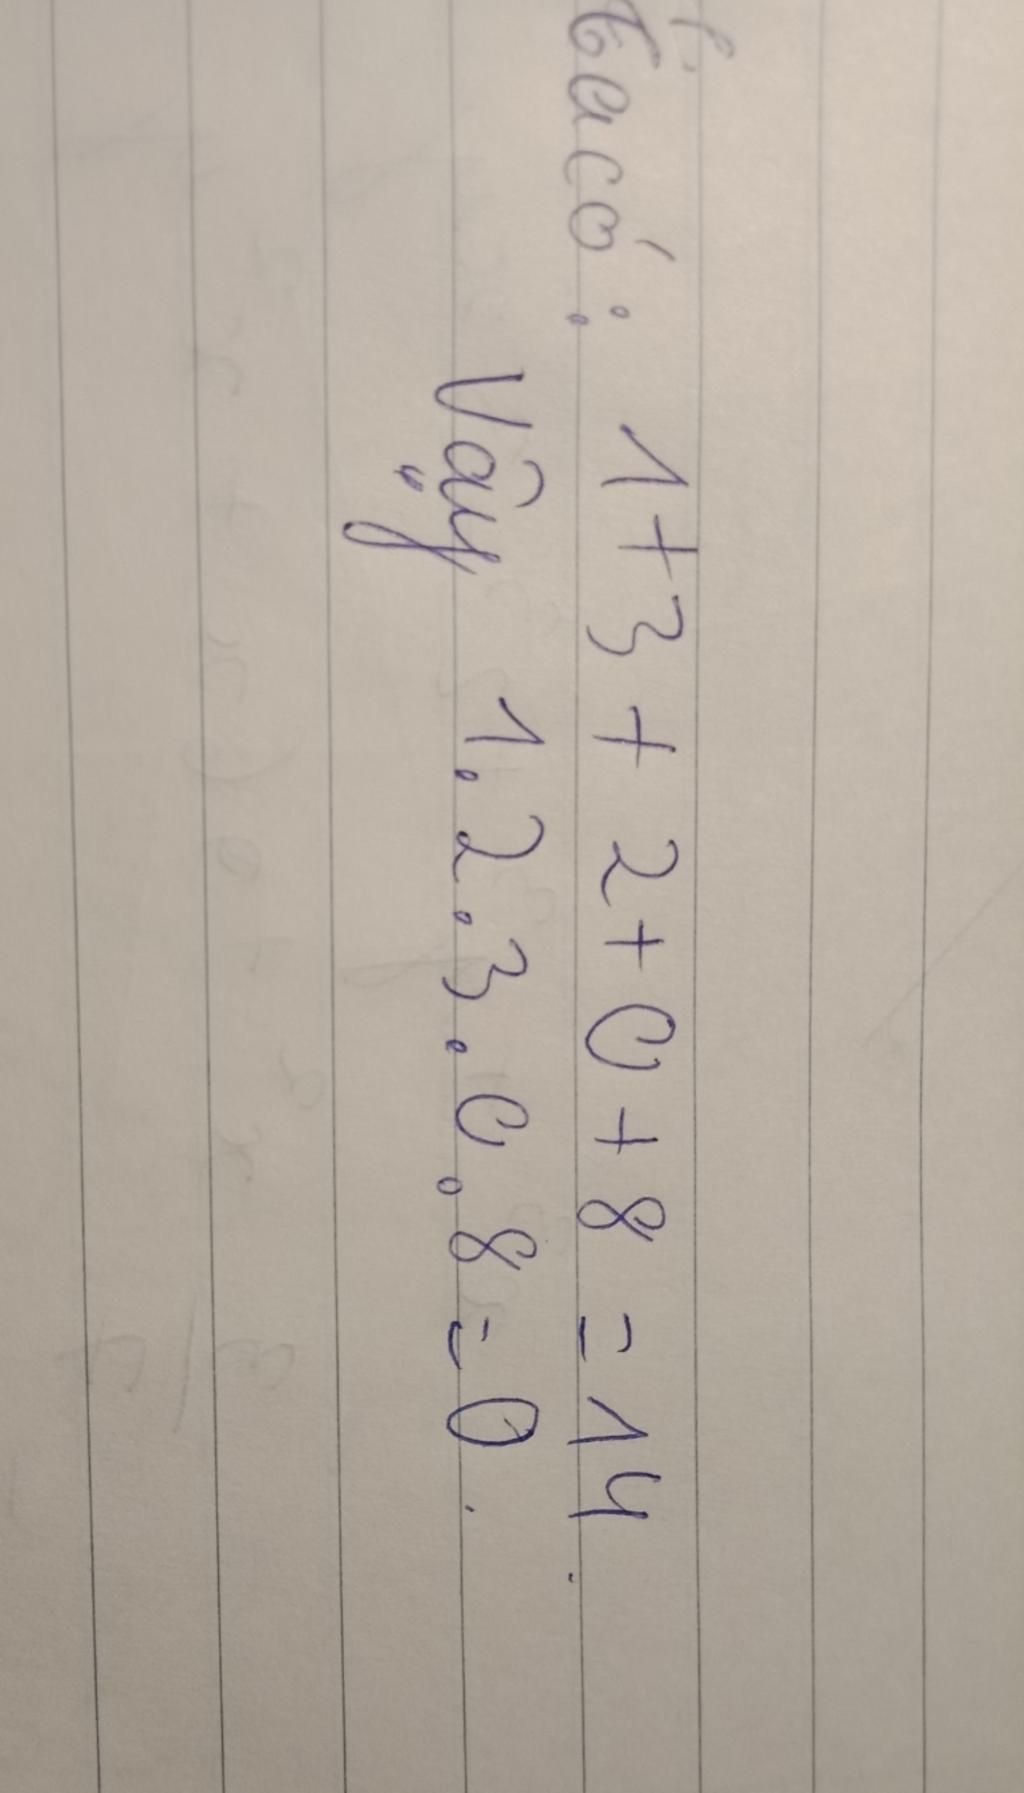 Ta có : 1 + 3 + 2 + 0 + 8 = 14.
Vậy 1.2.3.0.8 = 0.